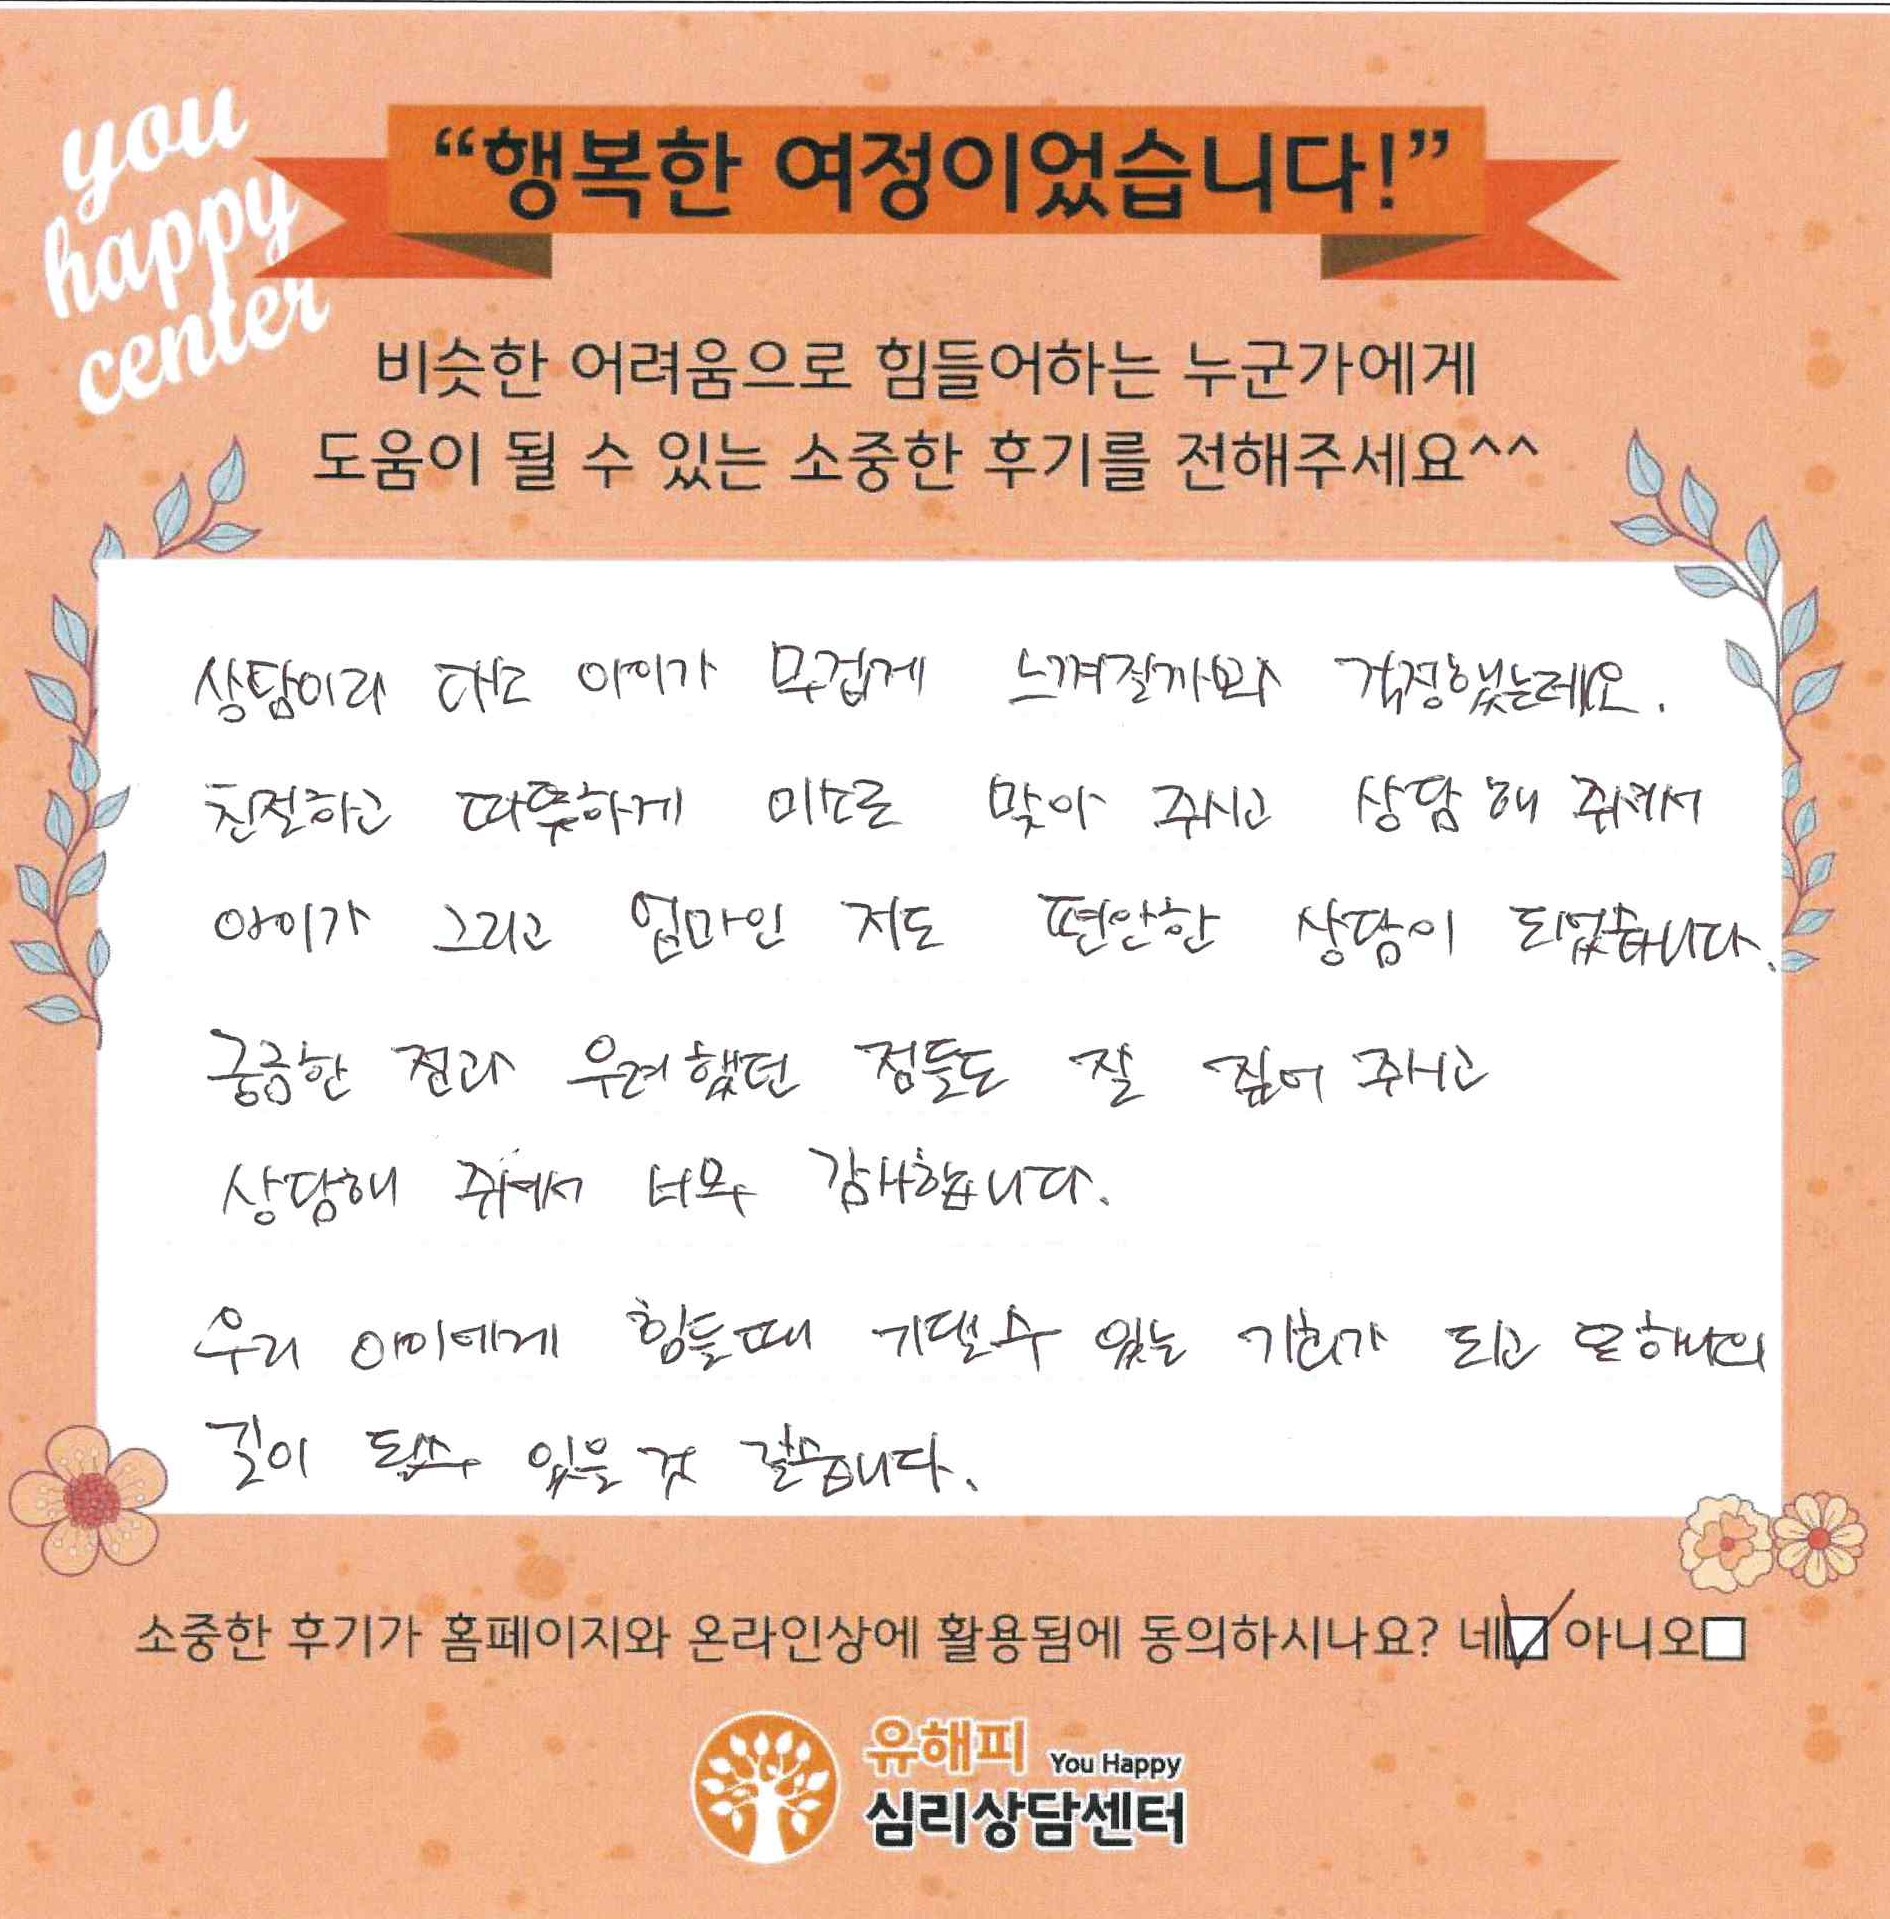 you
happy
center
“행복한 여정이었습니다!”
비슷한 어려움으로 힘들어하는 누군가에게
도움이 될 수 있는 소중한 후기를 전해주세요^^
상담이라 아이가 무겁게 느껴질까봐 걱정했는데요.
친절하고 따뜻하게 미소로 맞아 주시고 상담해 주셔서
아이가 그리고 엄마인 저도 편안한 상담이 되었습니다.
궁금한 점과 우려했던 점들도 잘 짚어 주시고
상담해 주셔서 너무 감사합니다.
우리 아이에게 힘들때 기댈수 있는 기회가 되고 또하나의
길이 될수 있을 것 같습니다.
소중한 후기가 홈페이지와 온라인상에 활용됨에 동의하시나요? 네 아니오
유해피 You Happy
심리상담센터